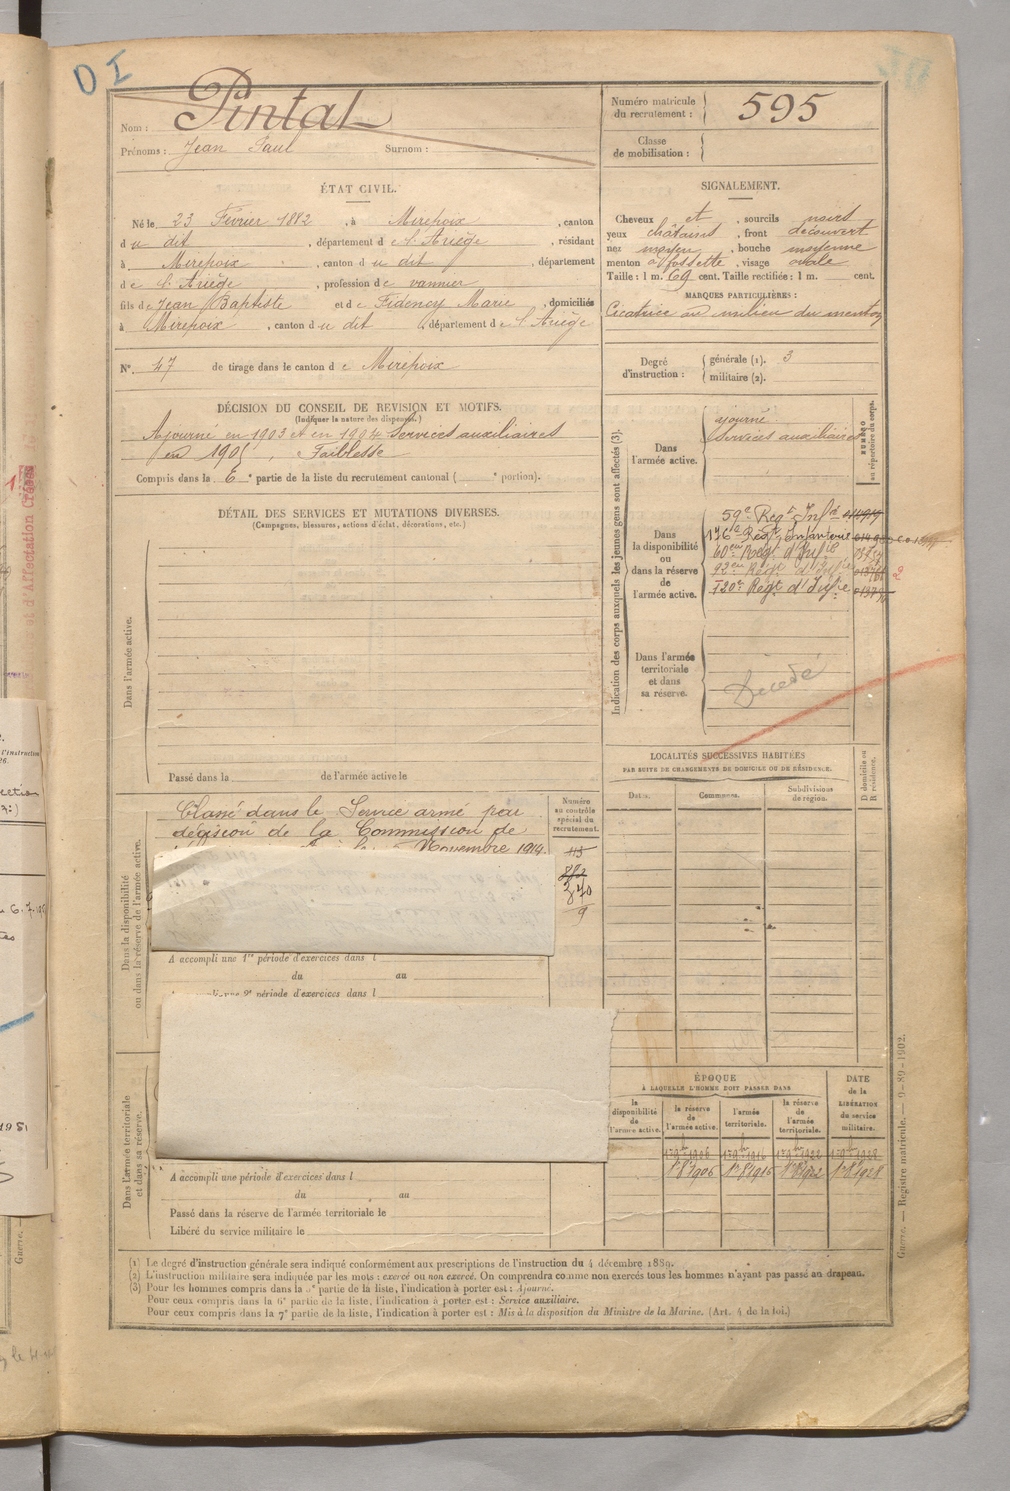 D I
Nom : Pintat
Prénoms : Jean Paul Surnom :
Numéro matricule
du recrutement : 595
Classe
de mobilisation :
ÉTAT CIVIL.
Né le 23 Février 1882, à Mirepoix, canton
du dit, département de l'Ariège, résidant
à Mirepoix, canton du dit, département
de l'Ariège, profession de vannier
fils de Jean Baptiste et de Fidency Marie, domiciliés
à Mirepoix, canton du dit, département de l'Ariège
N°. 47 de tirage dans le canton de Mirepoix
SIGNALEMENT.
Cheveux et, sourcils noirs
yeux châtains, front découvert
nez moyen, bouche moyenne
menton à fossette, visage ovale
Taille : 1 m. 69 cent. Taille rectifiée : 1 m. cent.
MARQUES PARTICULIÈRES :
Cicatrice au milieu du menton
Degré
d'instruction :
générale (1). 3
militaire (2).
DÉCISION DU CONSEIL DE REVISION ET MOTIFS.
(Indiquer la nature des dispenses.)
Ajourné en 1903 et en 1904 Services auxiliaires
en 1905, Faiblesse
Compris dans la 6e partie de la liste du recrutement cantonal ( e portion).
DÉTAIL DES SERVICES ET MUTATIONS DIVERSES.
(Campagnes, blessures, actions d'éclat, décorations, etc.)
Dans l'armée active.
Passé dans la de l'armée active le
Indication des corps auxquels les jeunes gens sont affectés (3).
NUMÉRO
au répertoire du corps.
Dans
l'armée active.
ajourné
Services auxiliaires
Dans
la disponibilité
ou
dans la réserve
de
l'armée active.
59e Regt Infie
176e Regt Infanterie
60eme Regt d'Infie
92eme Regt d'Infie
130e Regt d'Infie
Dans l'armée
territoriale
et dans
sa réserve.
Décédé
LOCALITÉS SUCCESSIVES HABITÉES
PAR SUITE DE CHANGEMENTS DE DOMICILE OU DE RÉSIDENCE.
Dates. Communes. Subdivisions
de région.
D domicile ou
R résidence.
Dans la disponibilité
ou dans la réserve de l'armée active.
Classé dans le Service armé par
décision de la Commission de
Novembre 1914.
Numéro
au contrôle
spécial du
recrutement.
370
9
A accompli une 1re période d'exercices dans l
du au
2e période d'exercices dans l
Dans l'armée territoriale
et dans sa réserve.
A accompli une période d'exercices dans l
du au
Passé dans la réserve de l'armée territoriale le
Libéré du service militaire le
ÉPOQUE
À LAQUELLE L'HOMME DOIT PASSER DANS
la
disponibilité
de
l'armée active.
la réserve
de
l'armée active.
l'armée
territoriale.
la réserve
de
l'armée
territoriale.
DATE
de la
LIBÉRATION
du service
militaire.
1er 8bre 1906 1er 8bre 1916 1er 8bre 1922 1er 8bre 1928
(1) Le degré d'instruction générale sera indiqué conformément aux prescriptions de l'instruction du 4 décembre 1889.
(2) L'instruction militaire sera indiquée par les mots : exercé ou non exercé. On comprendra comme non exercés tous les hommes n'ayant pas passé au drapeau.
(3) Pour les hommes compris dans la 5e partie de la liste, l'indication à porter est : Ajourné.
Pour ceux compris dans la 6e partie de la liste, l'indication à porter est : Service auxiliaire.
Pour ceux compris dans la 7e partie de la liste, l'indication à porter est : Mis à la disposition du Ministre de la Marine. (Art. 4 de la loi.)
Guerre. — Registre matricule. — 9-89-1902.